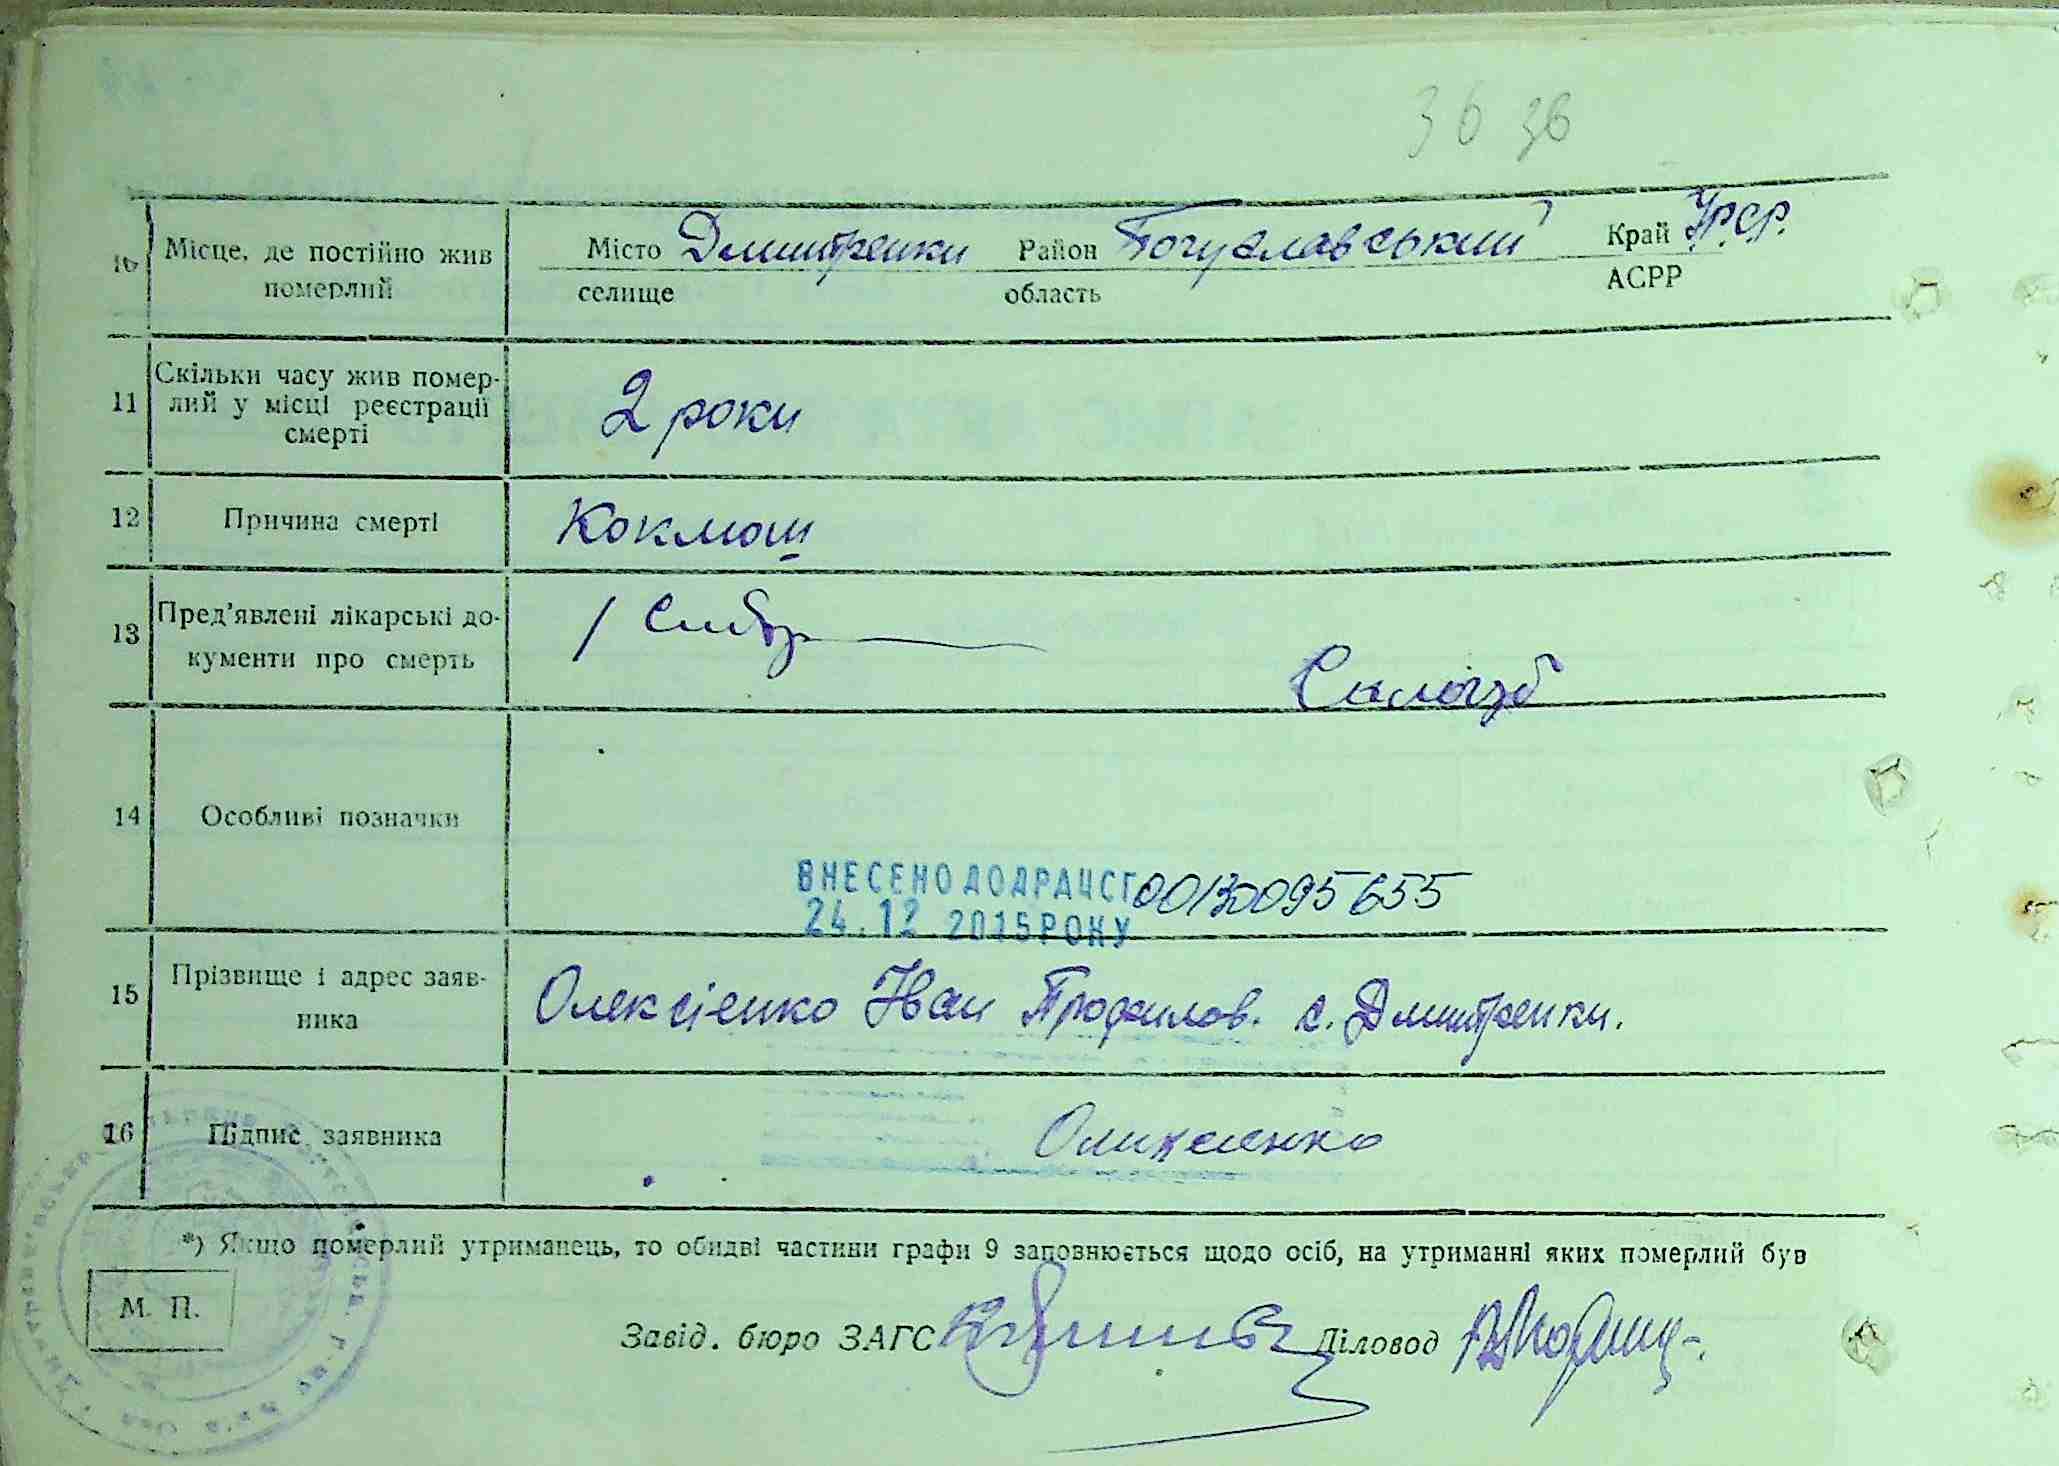 36 зв
10 Місце, де постійно жив померлий Місто селище Дмитренки Район область Богуславський Край АСРР УРСР.
11 Скільки часу жив помер-
лий у місці реєстрації
смерті 2 роки
12 Причина смерті Коклюш
13 Пред'явлені лікарські до-
кументи про смерть
14 Особливі позначки
ВНЕСЕНО ДО ДРАЦСГ 00130095655
24.12 2015 РОКУ
15 Прізвище і адрес заяв-
ника Олексієнко Іван Трофилов. с. Дмитренки.
16 Підпис заявника Оликсиенко
*) Якщо померлий утриманець, то обидві частини графи 9 заповнюється щодо осіб, на утриманні яких померлий був
М. П.
Завід. бюро ЗАГС Діловод